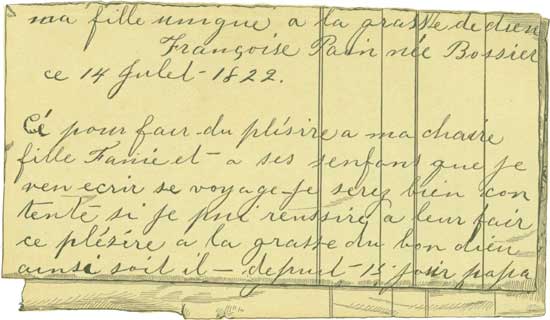 ma fille unique a la grasse de dieu
Françoise Pain née Bossier
ce 14 Julet - 1822.
Cé pour fair du plésire a ma chaire
fille Fanie et a ses senfans que je
ven ecrir se voyage - Je serez bien con
tente si je pui reussire a leur fair
ce plésire a la grasse du bon dieu
ainsi soit il - depuit 15 jour papa